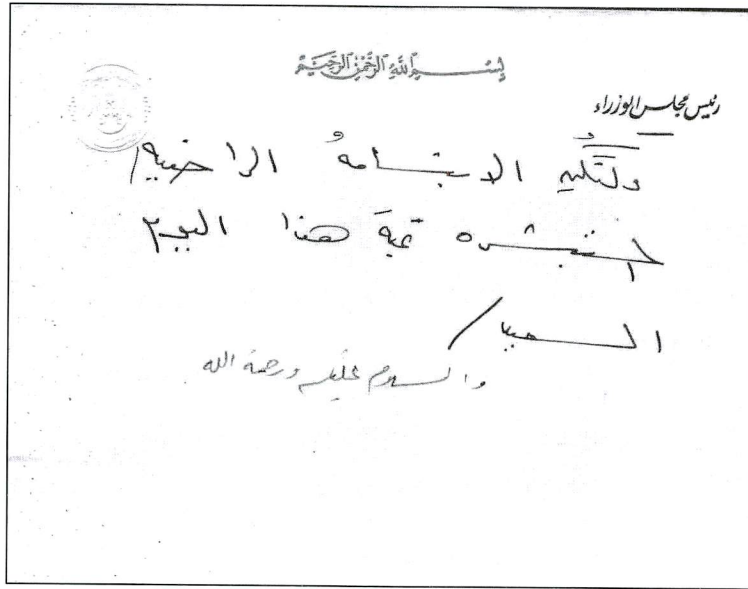 بسم الله الرحمن الرحيم
رئيس مجلس الوزراء
ولتكن الابتسامة الراضية
المستبشرة تحية هذا اليوم
السعيد/
والسلام عليكم ورحمة الله